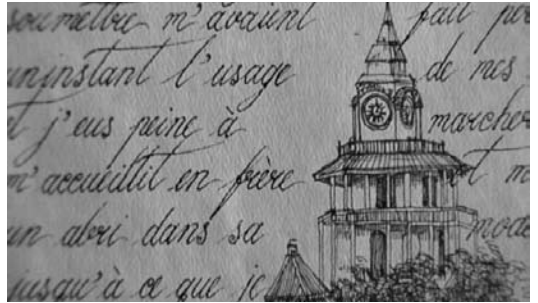 soumettre m'avaient fait per
un instant l'usage de mes
et j'eus peine à marcher
m'accueillit en frère et m
un abri dans sa mode
jusqu'à ce que je